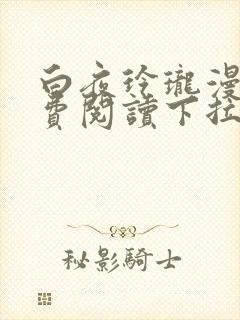 白夜玲瓏漫
費閱讀下拉
秘影騎士